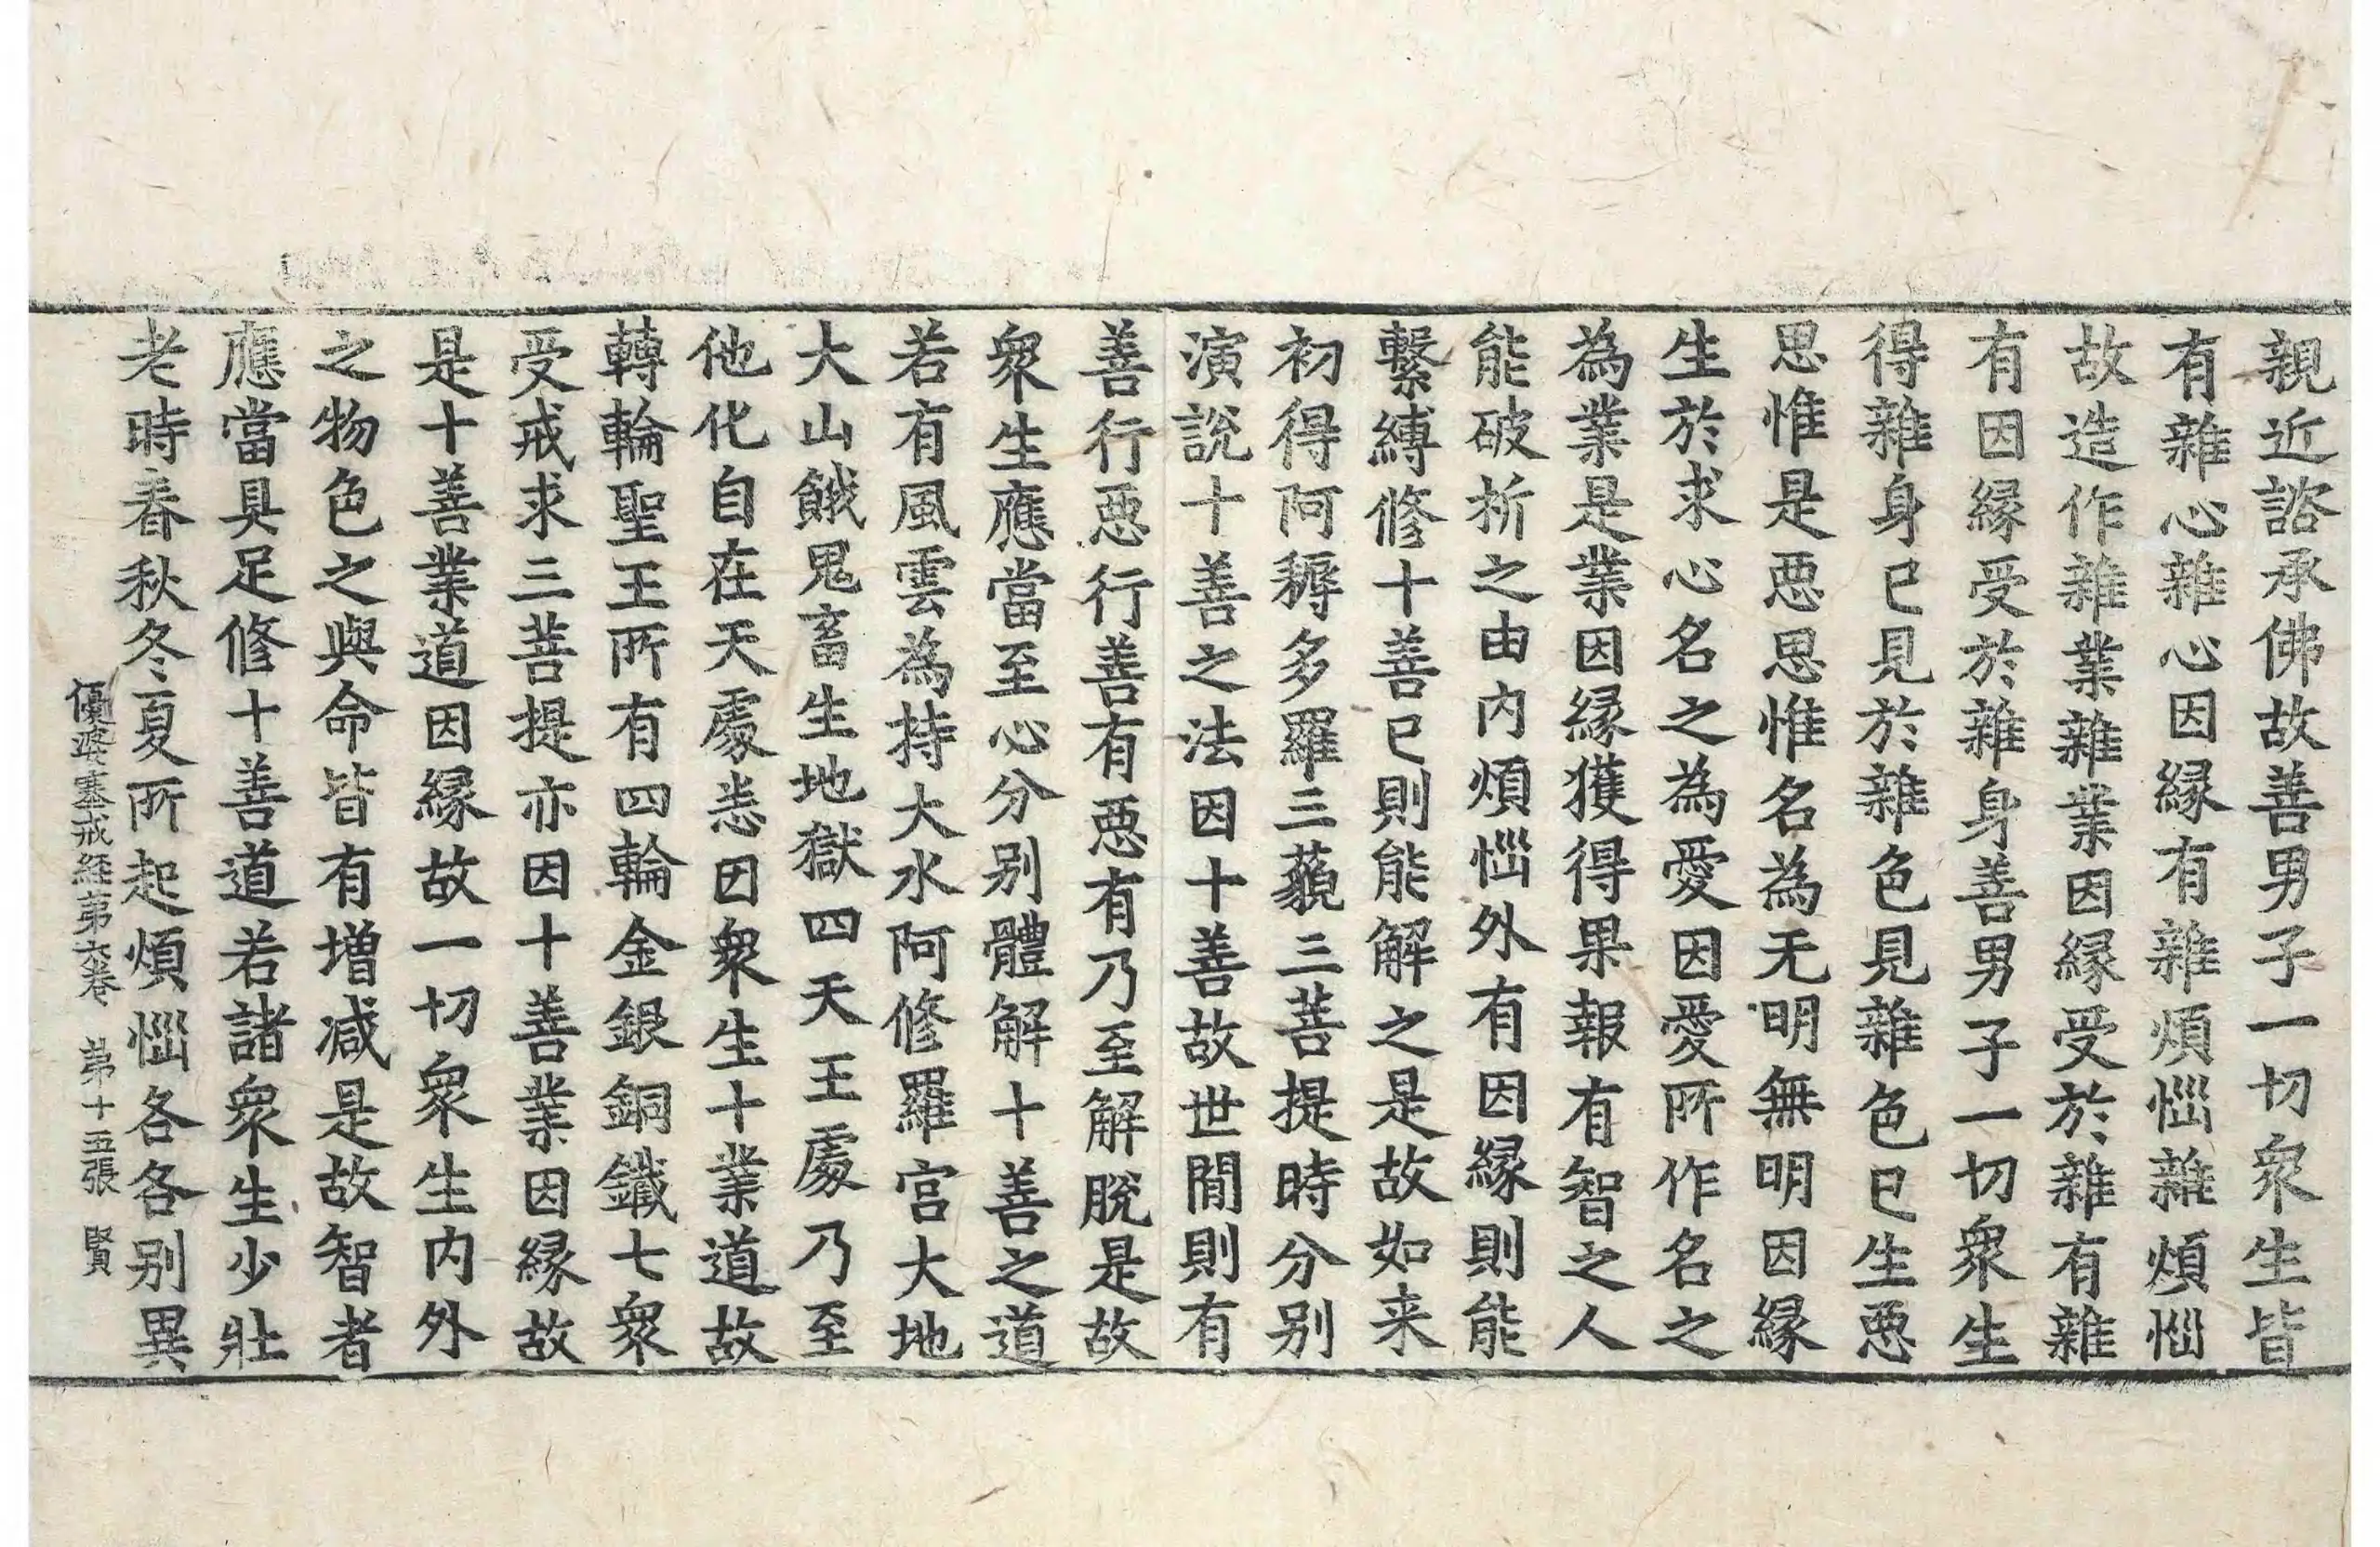 親近諮承佛故善男子一切衆生皆
有雜心雜心因縁有雜煩惱雜煩惱
故造作雜業雜業因縁受於雜有雜
有因縁受於雜身善男子一切衆生
得雜身已見於雜色見雜色已生惡
思惟是惡思惟名為无明無明因縁
生於求心名之為愛因愛所作名之
為業是業因縁獲得果報有智之人
能破折之由內煩惱外有因縁則能
繫縛修十善已則能解之是故如来
初得阿耨多羅三藐三菩提時分別
演說十善之法因十善故世間則有
善行惡行善有惡有乃至解脫是故
衆生應當至心分別體解十善之道
若有風雲為持大水阿修羅宮大地
大山餓鬼畜生地獄四天王處乃至
他化自在天處悉因衆生十業道故
轉輪聖王所有四輪金銀銅鐵七衆
受戒求三菩提亦因十善業因縁故
是十善業道因縁故一切衆生內外
之物色之與命皆有增减是故智者
應當具足修十善道若諸衆生少壯
老時春秋冬夏所起煩惱各各別異
優婆塞戒経第六卷 第十五張 賢